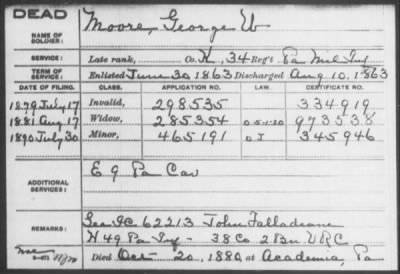 DEAD
NAME OF SOLDIER: Moore, George W
SERVICE: Late rank, Co. K, 34 Reg't Pa Mil Inf
TERM OF SERVICE: Enlisted June 30 1863 Discharged Aug 10, 1863
DATE OF FILING. CLASS. APPLICATION NO. LAW. CERTIFICATE NO.
1879 July 17 Invalid, 298535 334919
1881 Aug 17 Widow, 285354 973538
1890 July 30 Minor, 465191 345946
ADDITIONAL SERVICES: E 9 Pa Cav
REMARKS: See IC 62213 John
H 49 Pa Inf - 38 Co 2 Bn VRC
Died Oct 20, 1880, at Academia, Pa